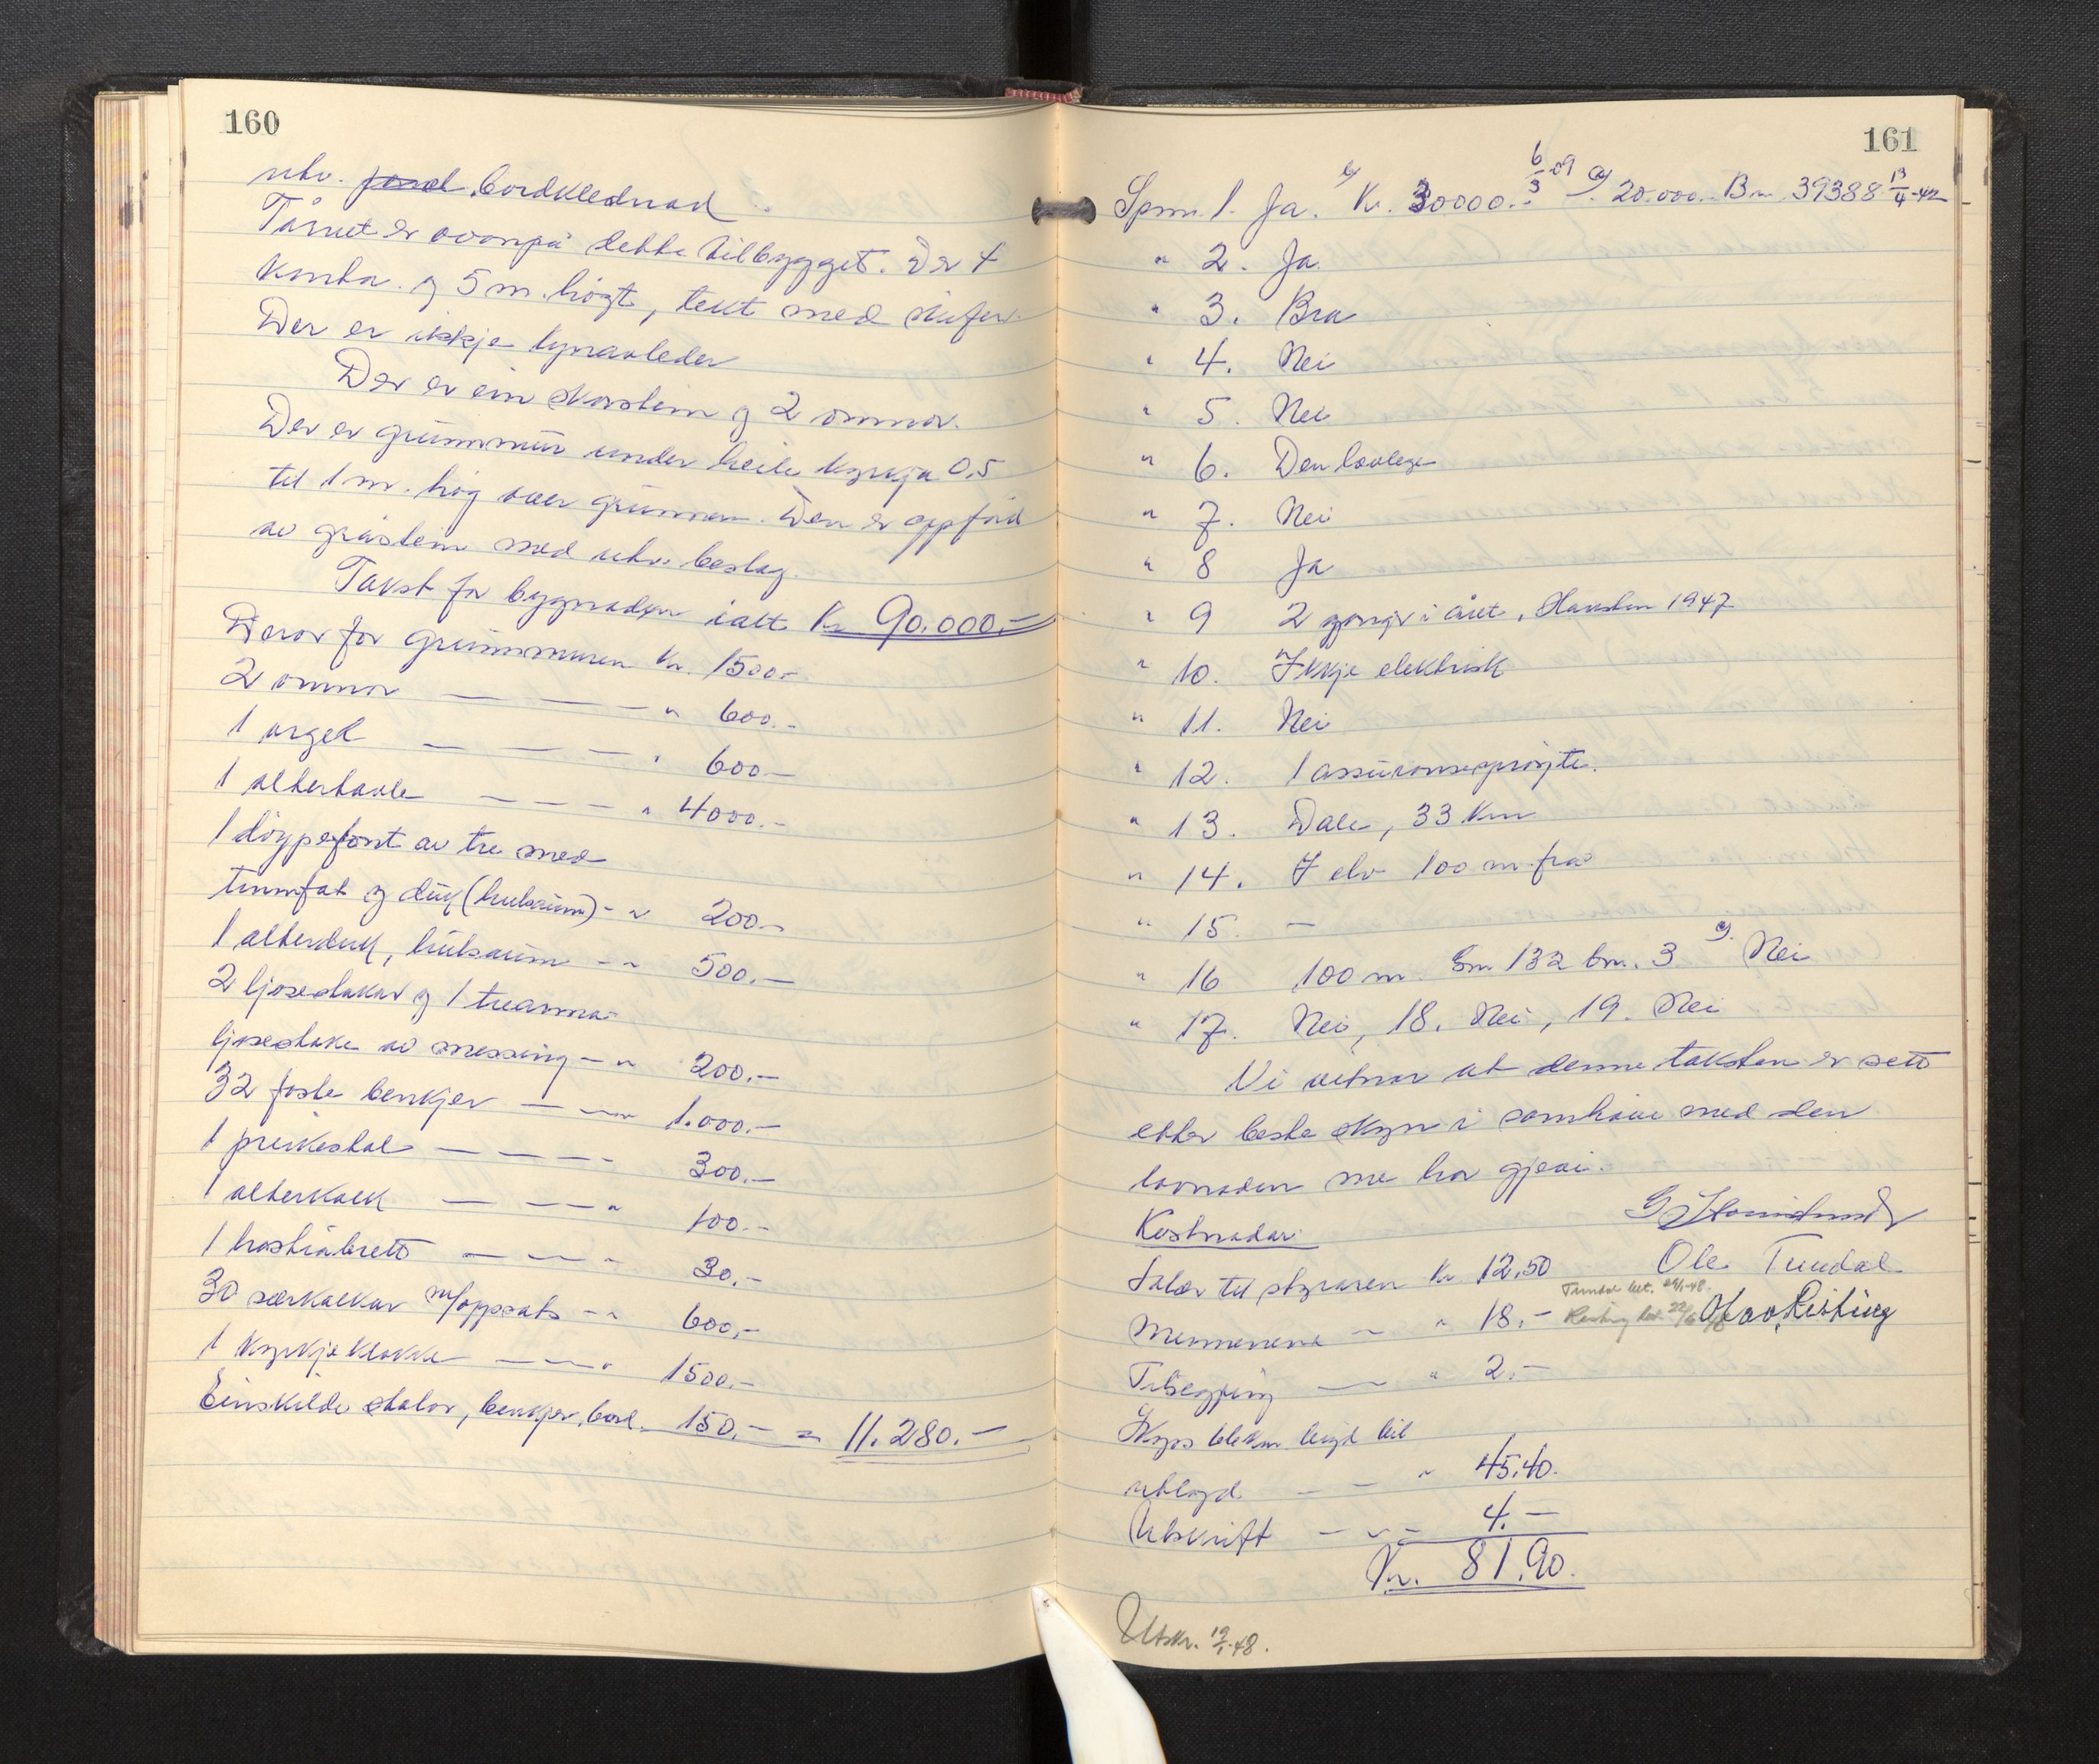 160
utv. bordklednad.
Tårnet er ovanpå dette tilbygget. Det er 4
kanta og 5 m. högt, tekt med skifer.
Der er ikkje lynavleder
Der er ein skorstein og 2 omnar.
Der er grunnmur under heile kyrkja 0,5
til 1 m. hög over grunnen. Den er oppförd
av gråstein med utv. beslag.
Takst for bygnaden ialt Kr. 90.000.-
Derav for grunnmuren Kr. 1500.-
2 omnar — — — " 600.-
1 orgel — — — " 600.-
1 altertavle — — — " 4000.-
1 döypefont av tre med
tinnfat og duk (hulsaum) - " 200.-
1 alterduk, hulsaum - " 500.-
2 ljosestakar og 1 trearma
ljosestake av messing - " 200.-
32 faste benkjer — " 1.000.-
1 preikestol — — — 300.-
1 alterkalk — — — " 100.-
1 hostiabrett — — — 30.-
30 særkalkar m/oppsats - " 600.-
1 kyrkjeklokke — — " 1500.-
Einskilde stolar, benkjer, bord. 150.- = 11.280.-
161
Spm. 1. Ja. Kr. 30000.- 6/3-29 og 20.000.- Bm. 39388 13/4-42
" 2. Ja.
" 3. Bra
" 4. Nei
" 5. Nei
" 6. Den lovlege
" 7. Nei
" 8 Ja
" 9 2 gonger i året, Hausten 1947
" 10. Ikkje elektrisk
" 11. Nei
" 12. 1 assuransespröyte.
" 13. Dale, 33 Km
" 14. I elv 100 m. fra
" 15. —
" 16 100 m. Gn. 132 bn. 3 og. Nei
" 17. Nei, 18. Nei, 19. Nei
Vi vitnar at denne taksten er sett
etter beste skyn i samhöve med den
lovnaden me har gjevi.
Kostnadar:
Salær til styraren Kr 12,50 Ole Tundal
Tundal bet. 48.
Mennenene — " 18.- Olav Risting
Tilsegjing — " 2.-
Skyss leigd bil
utlagd — — " 45.40.
Utskrift — " - 4.-
Kr. 81.90.
Utskr. 19/1-48.